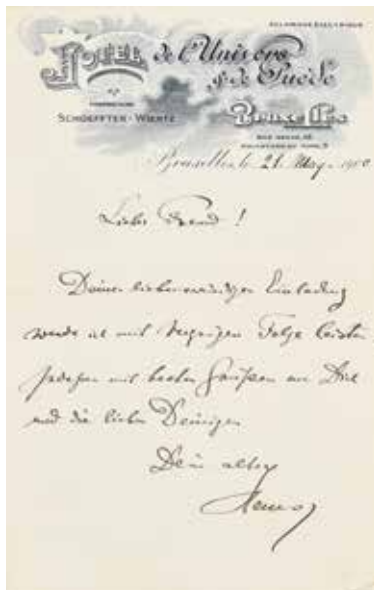 ECLAIRAGE ELECTRIQUE
HOTEL de l'Univers
& de Suède
PROPRIETAIRE
SCHOEFFTER-WIERTZ
Bruxelles
RUE NEUVE, 38
Bruxelles, le 21. May 1900
Lieber Freund!
Deiner liebenswürdigen Einladung
werde ich mit Vergnügen Folge leisten
mit besten Grüßen an Dich
und die lieben Deinigen
Dein alter